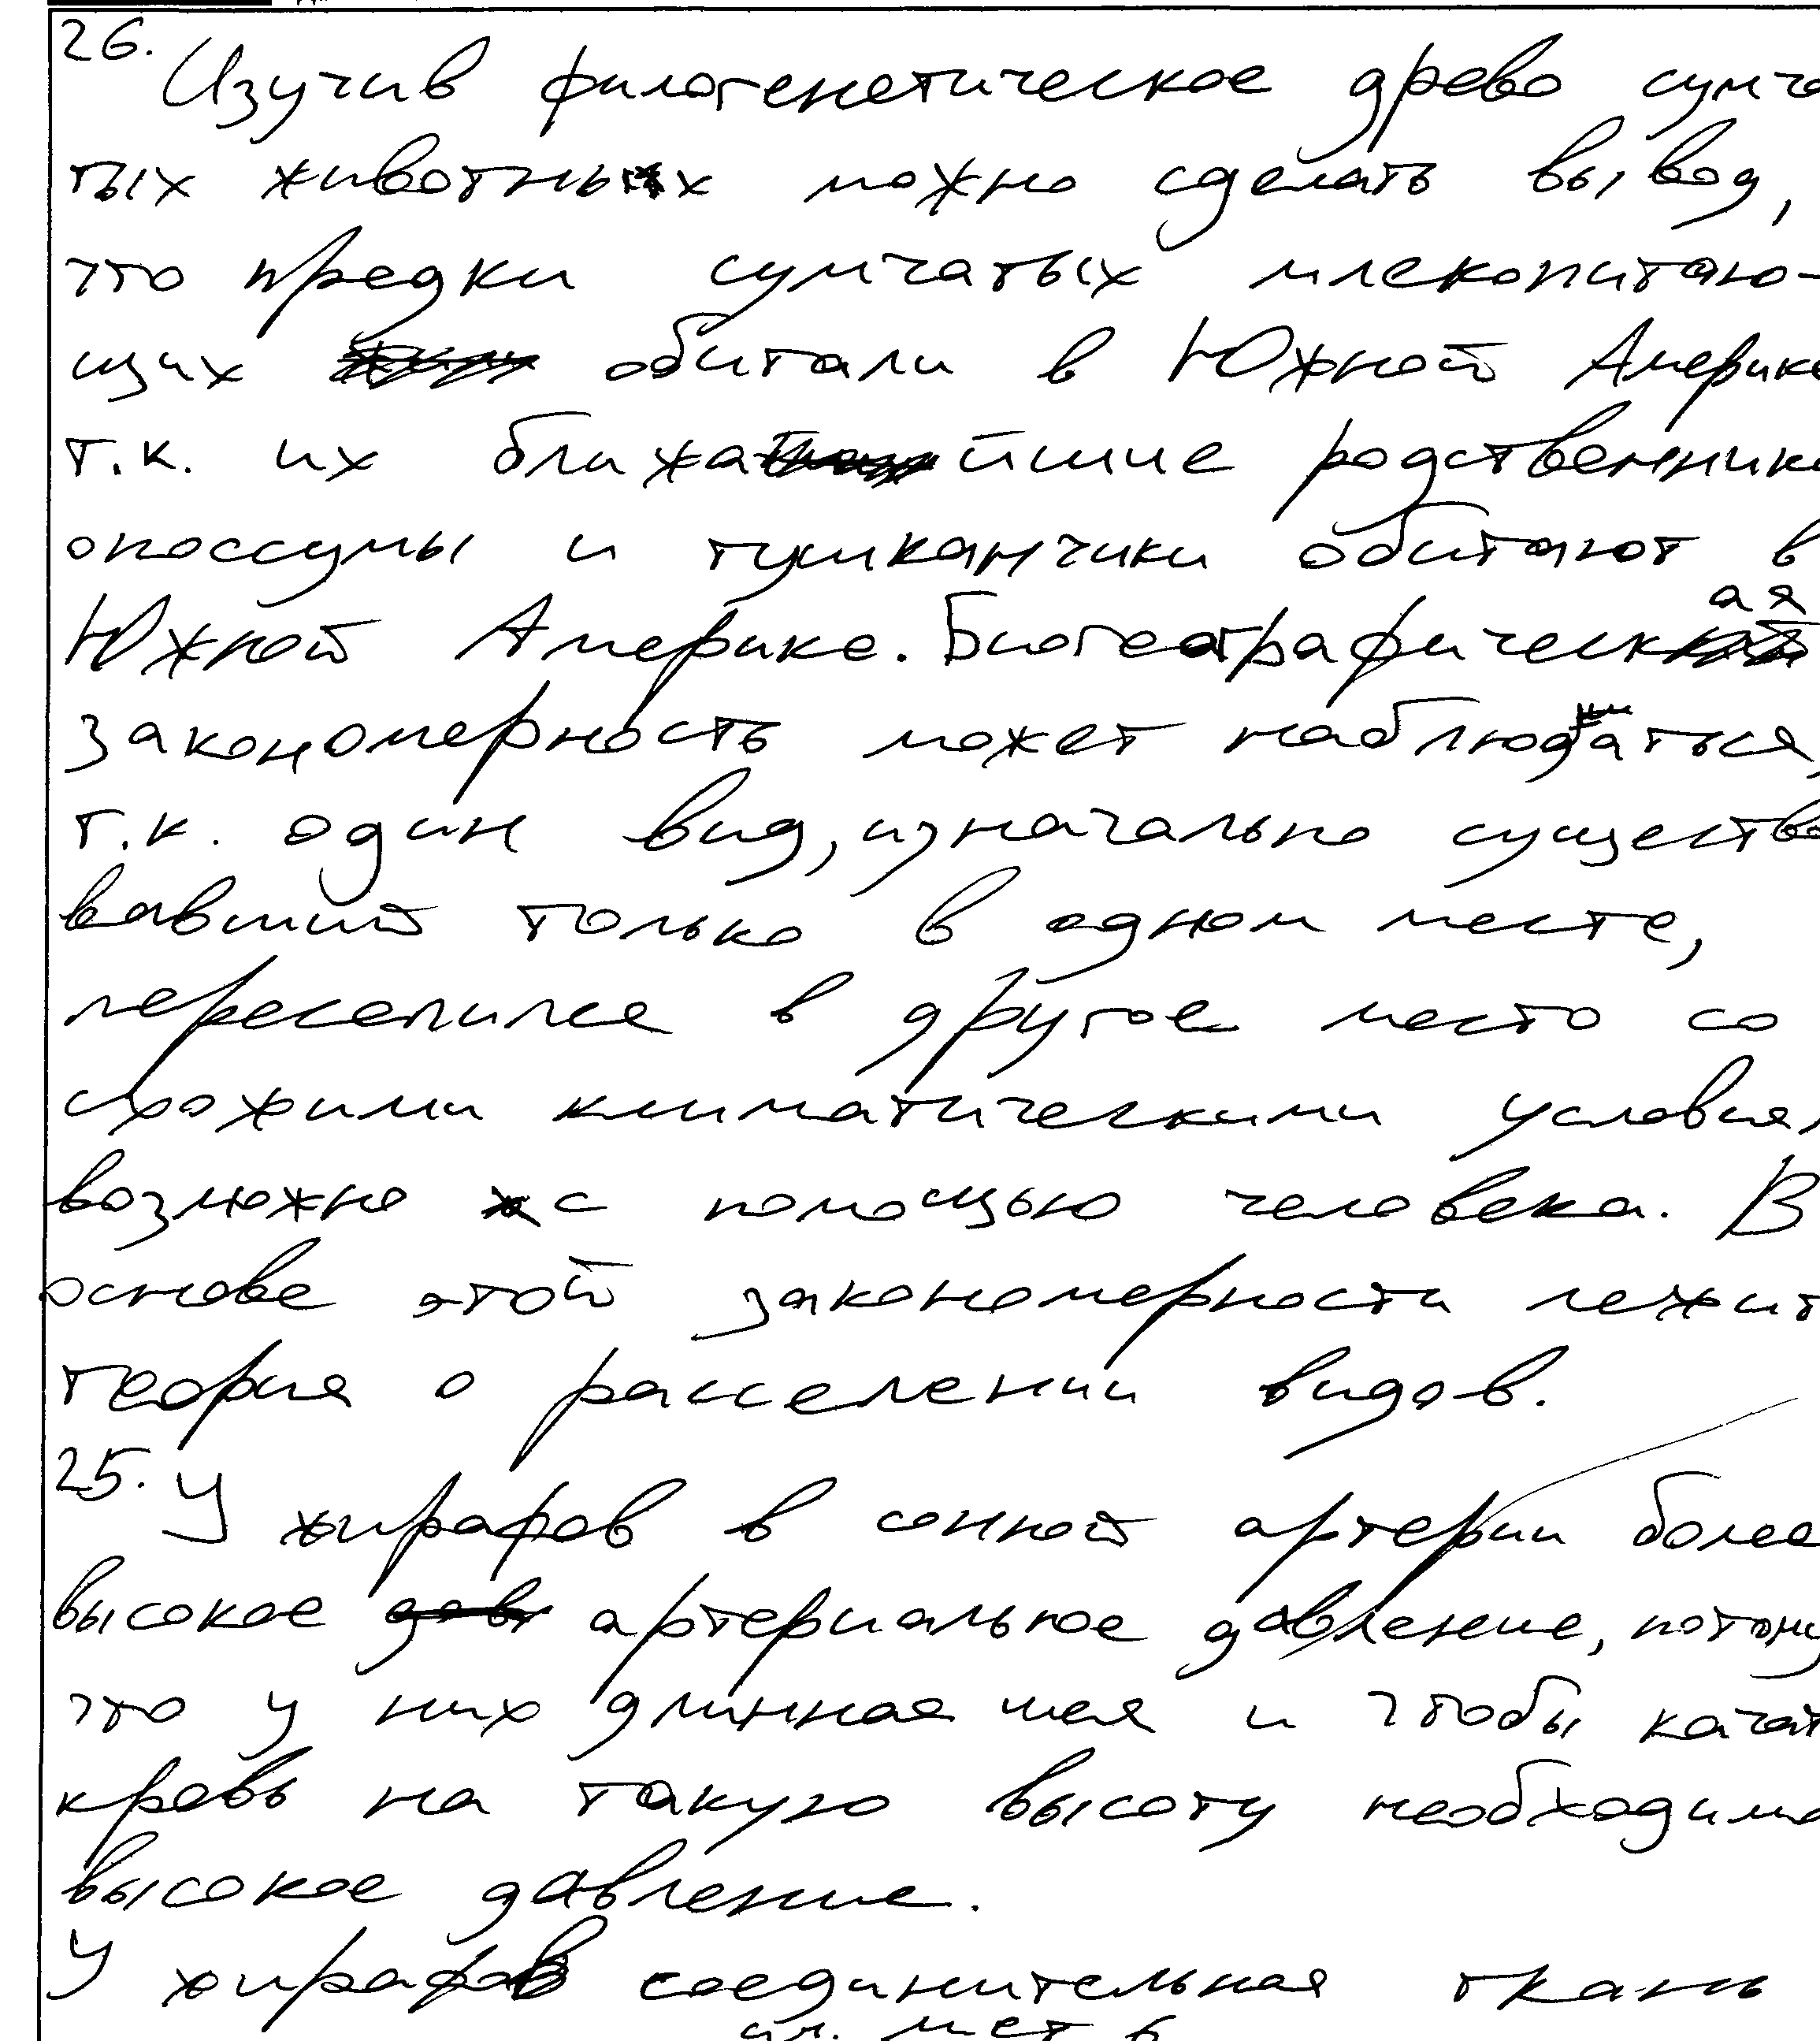 26.
Изучив филогенетическое древо сумча
тых животных можно сделать вывод,
что предки сумчатых млекопитаю-
щих обитали в Южной Америке
т.к. их ближайшие родственники
опоссумы и тушканчики обитают в
Южной Америке. Биогеографическая
закономерность может наблюдаться,
т.к. один вид, изначально существо
вавший только в одном месте,
переселился в другое место со
схожими климатическими условиям
возможно с помощью человека. В
основе этой закономерности лежит
теория о расселении видов.
25. У жирафов в сонной артерии более
высокое артериальное давление, потому
что у них длинная шея и чтобы качат
кровь на такую высоту необходимо
высокое давление.
У жирафов соединительная ткань